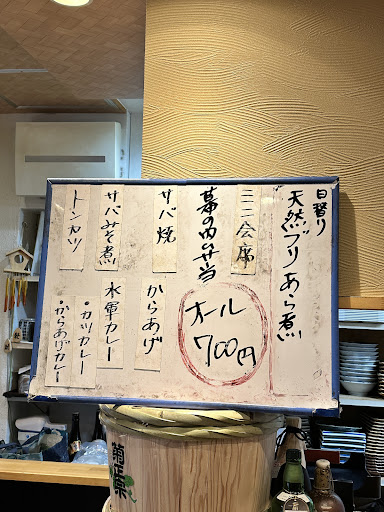 日替り
天然ブリあら煮
ミニ会席
幕の内弁当
オール
700円
サバ焼
からあげ
サバみそ煮
水軍カレー
・カツカレー
トンカツ
・からあげカレー
菊正宗